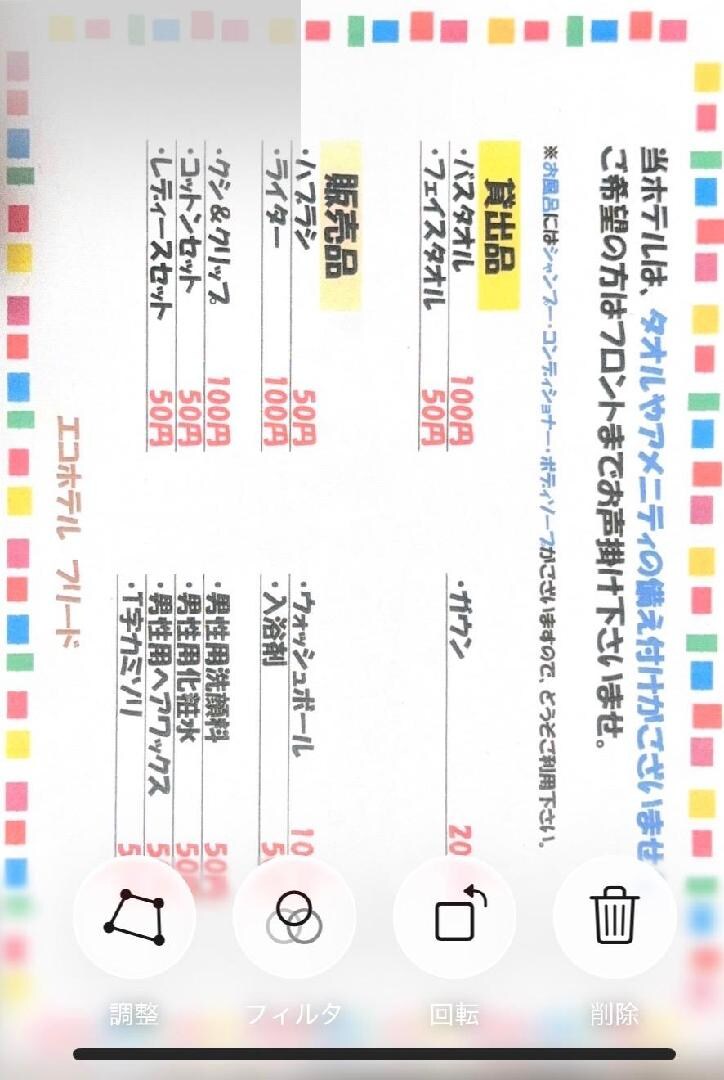 当ホテルは、タオルやアメニティの備え付けがございませ
ご希望の方はフロントまでお声掛け下さいませ。
※お風呂にはシャンプー・コンディショナー・ボディソープがございますので、どうぞご利用下さい。
貸出品
・バスタオル 100円
・フェイスタオル 50円
・ガウン 20
販売品
・ハブラシ 50円
・ライター 100円
・ウォッシュボール 10
・入浴剤 5
・クシ&クリップ 100円
・コットンセット 50円
・レディースセット 50円
・男性用洗顔料 50円
・男性用化粧水 50
・男性用ヘアワックス 5
・T字カミソリ 5
エコホテル フリード
調整
フィルタ
回転
削除